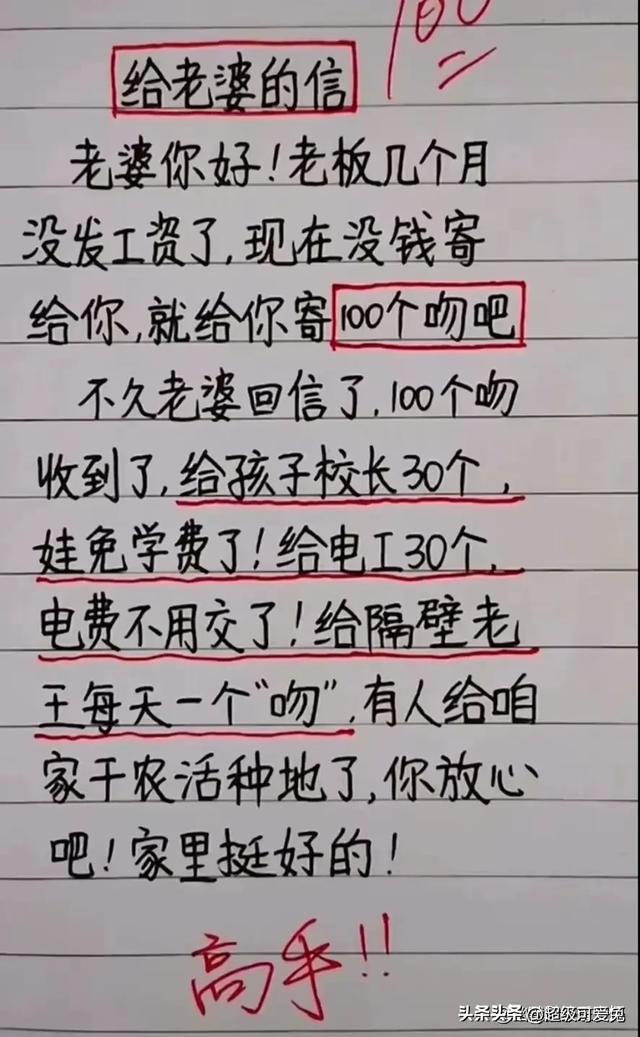 100
给老婆的信
老婆你好!老板几个月
没发工资了,现在没钱寄
给你,就给你寄100个吻吧
不久老婆回信了,100个吻
收到了,给孩子校长30个,
娃免学费了!给电工30个,
电费不用交了!给隔壁老
王每天一个“吻”,有人给咱
家干农活种地了,你放心
吧!家里挺好的!
高手!!
头条头条@超级可爱兔